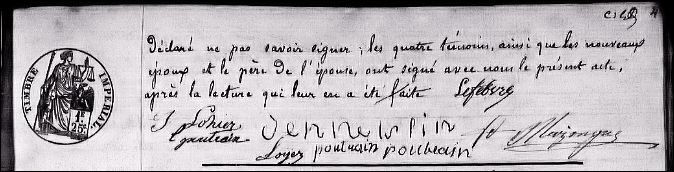 TIMBRE IMPÉRIAL
1F
25c
Déclaré ne pas savoir signer ; les quatre témoins, ainsi que les nouveaux
époux et le père de l'épouse, ont signé avec nous le présent acte,
après la lecture qui leur en a été faite Lefebvre
Loyez poutrain poutrain